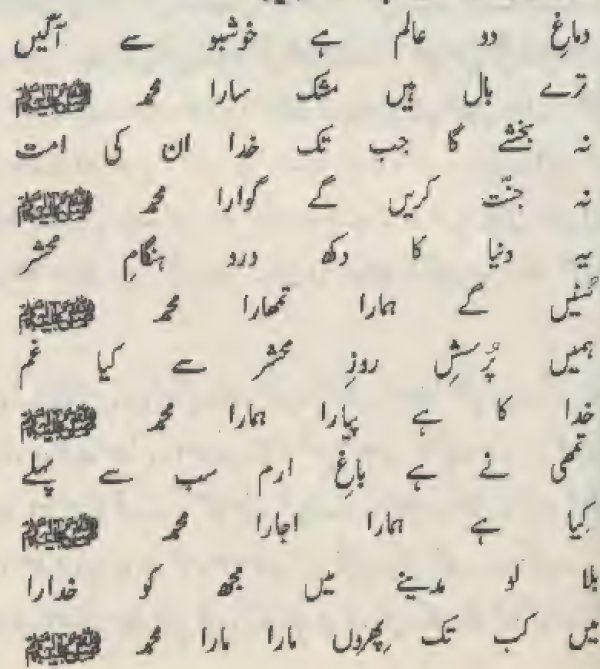 دماغِ دو عالم ہے خوشبو سے آگیں
ترے بال ہیں مشک سارا محمد ﷺ
نہ بخشے گا جب تک خدا ان کی امت
نہ جنّت کریں گے گوارا محمد ﷺ
یہ دنیا کا دکھ درد ہنگامِ محشر
سُنیں گے ہمارا تمھارا محمد ﷺ
ہمیں پُرسشِ روزِ محشر سے کیا غم
خدا کا ہے پیارا ہمارا محمد ﷺ
تمھی نے ہے باغِ ارم سب سے پہلے
کِیا ہے ہمارا اجارا محمد ﷺ
بلا لو مدینے میں مجھ کو خدارا
میں کب تک پِھروں مارا مارا محمد ﷺ